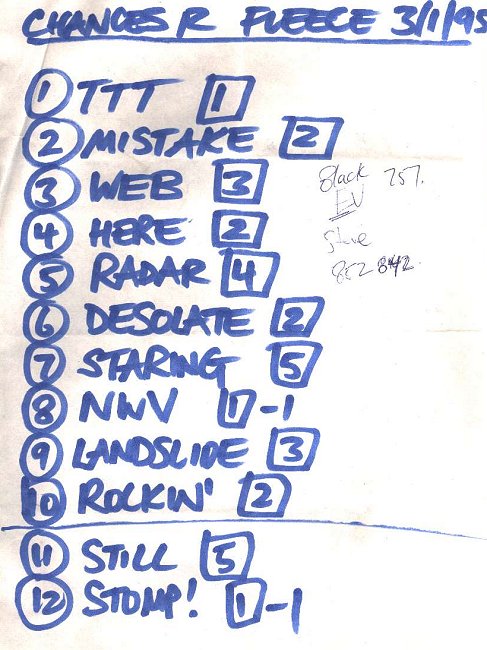 CHANCES R FLEECE 3/1/95
1 TTT 1
2 MISTAKE 2
3 WEB 3
4 HERE 2
5 RADAR 4
6 DESOLATE 2
7 STARING 5
8 NWV 1-1
9 LANDSLIDE 3
10 ROCKIN'  2
11 STILL 5
12 STOMP! 1-1
Black 757.
EV
Steve
852 842.